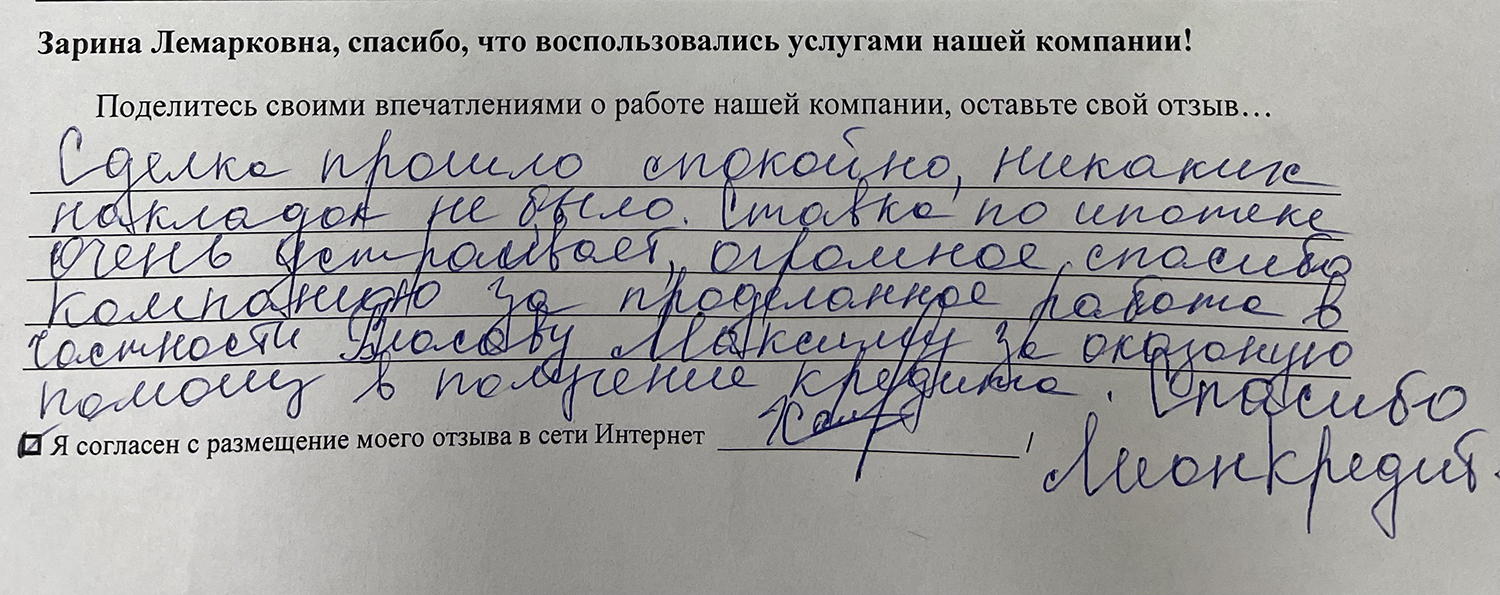 Зарина Лемарковна, спасибо, что воспользовались услугами нашей компании!
Поделитесь своими впечатлениями о работе нашей компании, оставьте свой отзыв...
Сделка прошло спокойно, никаких
накладок не было. Ставка по ипотеке
очень устраивает, огромное спасибо
компанию за проделанное работа в
частности Власову Максиму за оказаную
помощ в получение кредита. Спасибо
Я согласен с размещение моего отзыва в сети Интернет /
Лионкредит.